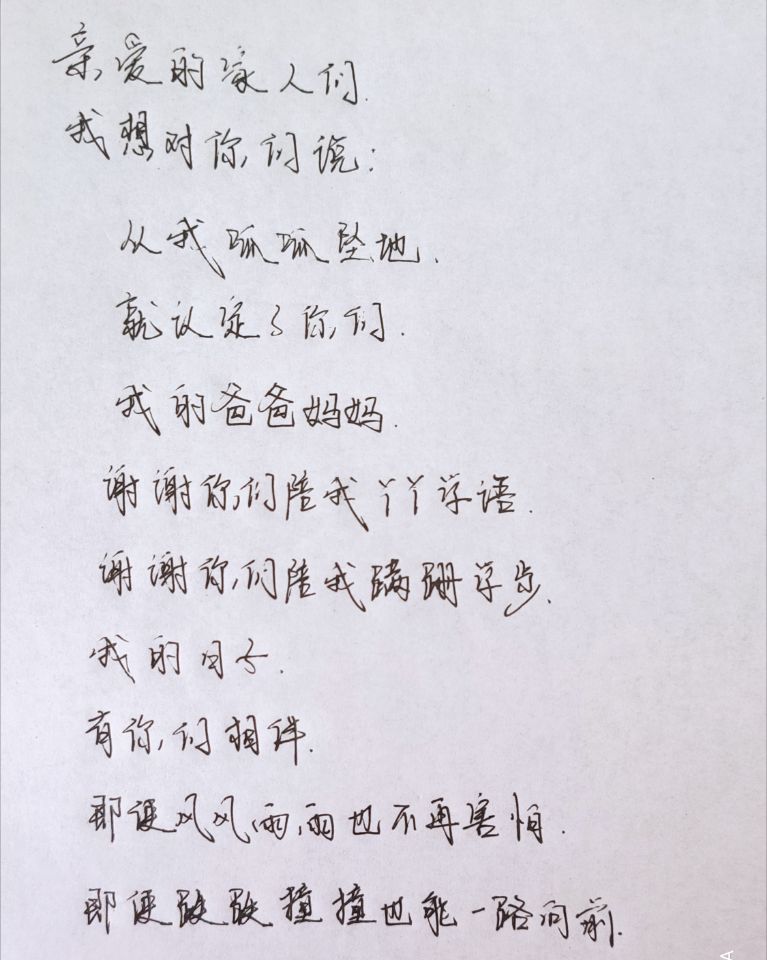 亲爱的家人们.
我想对你们说:
从我呱呱坠地.
就认定了你们.
我的爸爸妈妈.
谢谢你们陪我丫丫学语.
谢谢你们陪我蹒跚学步.
我的日子.
有你们相伴.
即便风风雨雨也不再害怕.
即便跌跌撞撞也能一路向前.
A